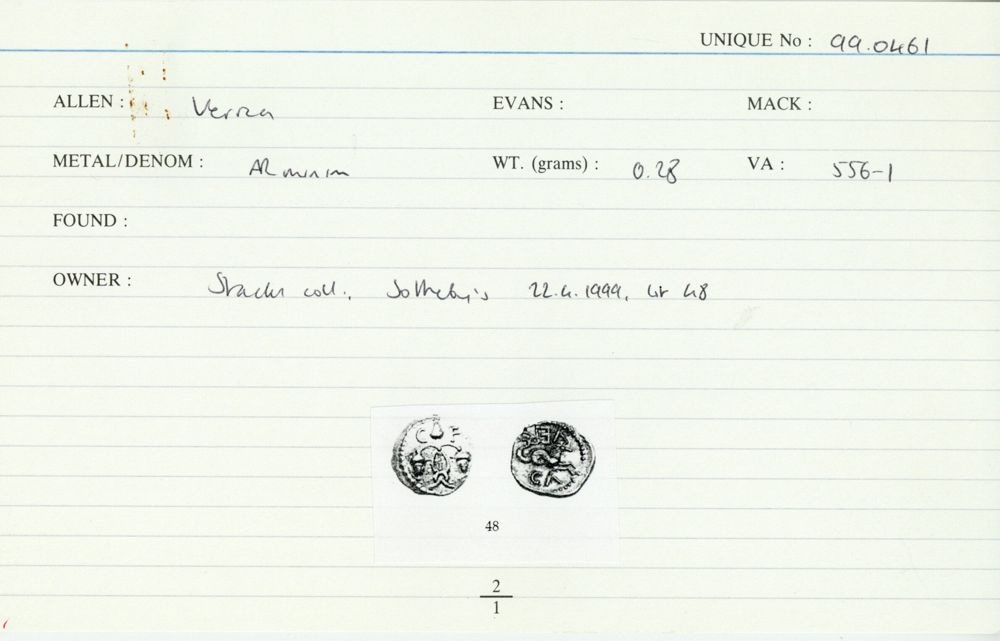 UNIQUE No : 99.0461
ALLEN : Verica EVANS : MACK :
METAL/DENOM : AR minim WT. (grams) : 0.28 VA : 556-1
FOUND :
OWNER : coll., Sotheby's 22.4.1999, lot 48
C F
CA
48
2
1